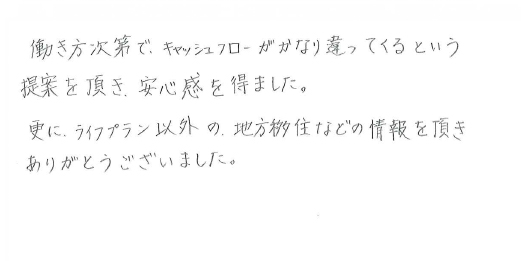 働き方次第で、キャッシュフローがかなり違ってくるという
提案を頂き、安心感を得ました。
更に、ライフプラン以外の、地方移住などの情報を頂き
ありがとうございました。